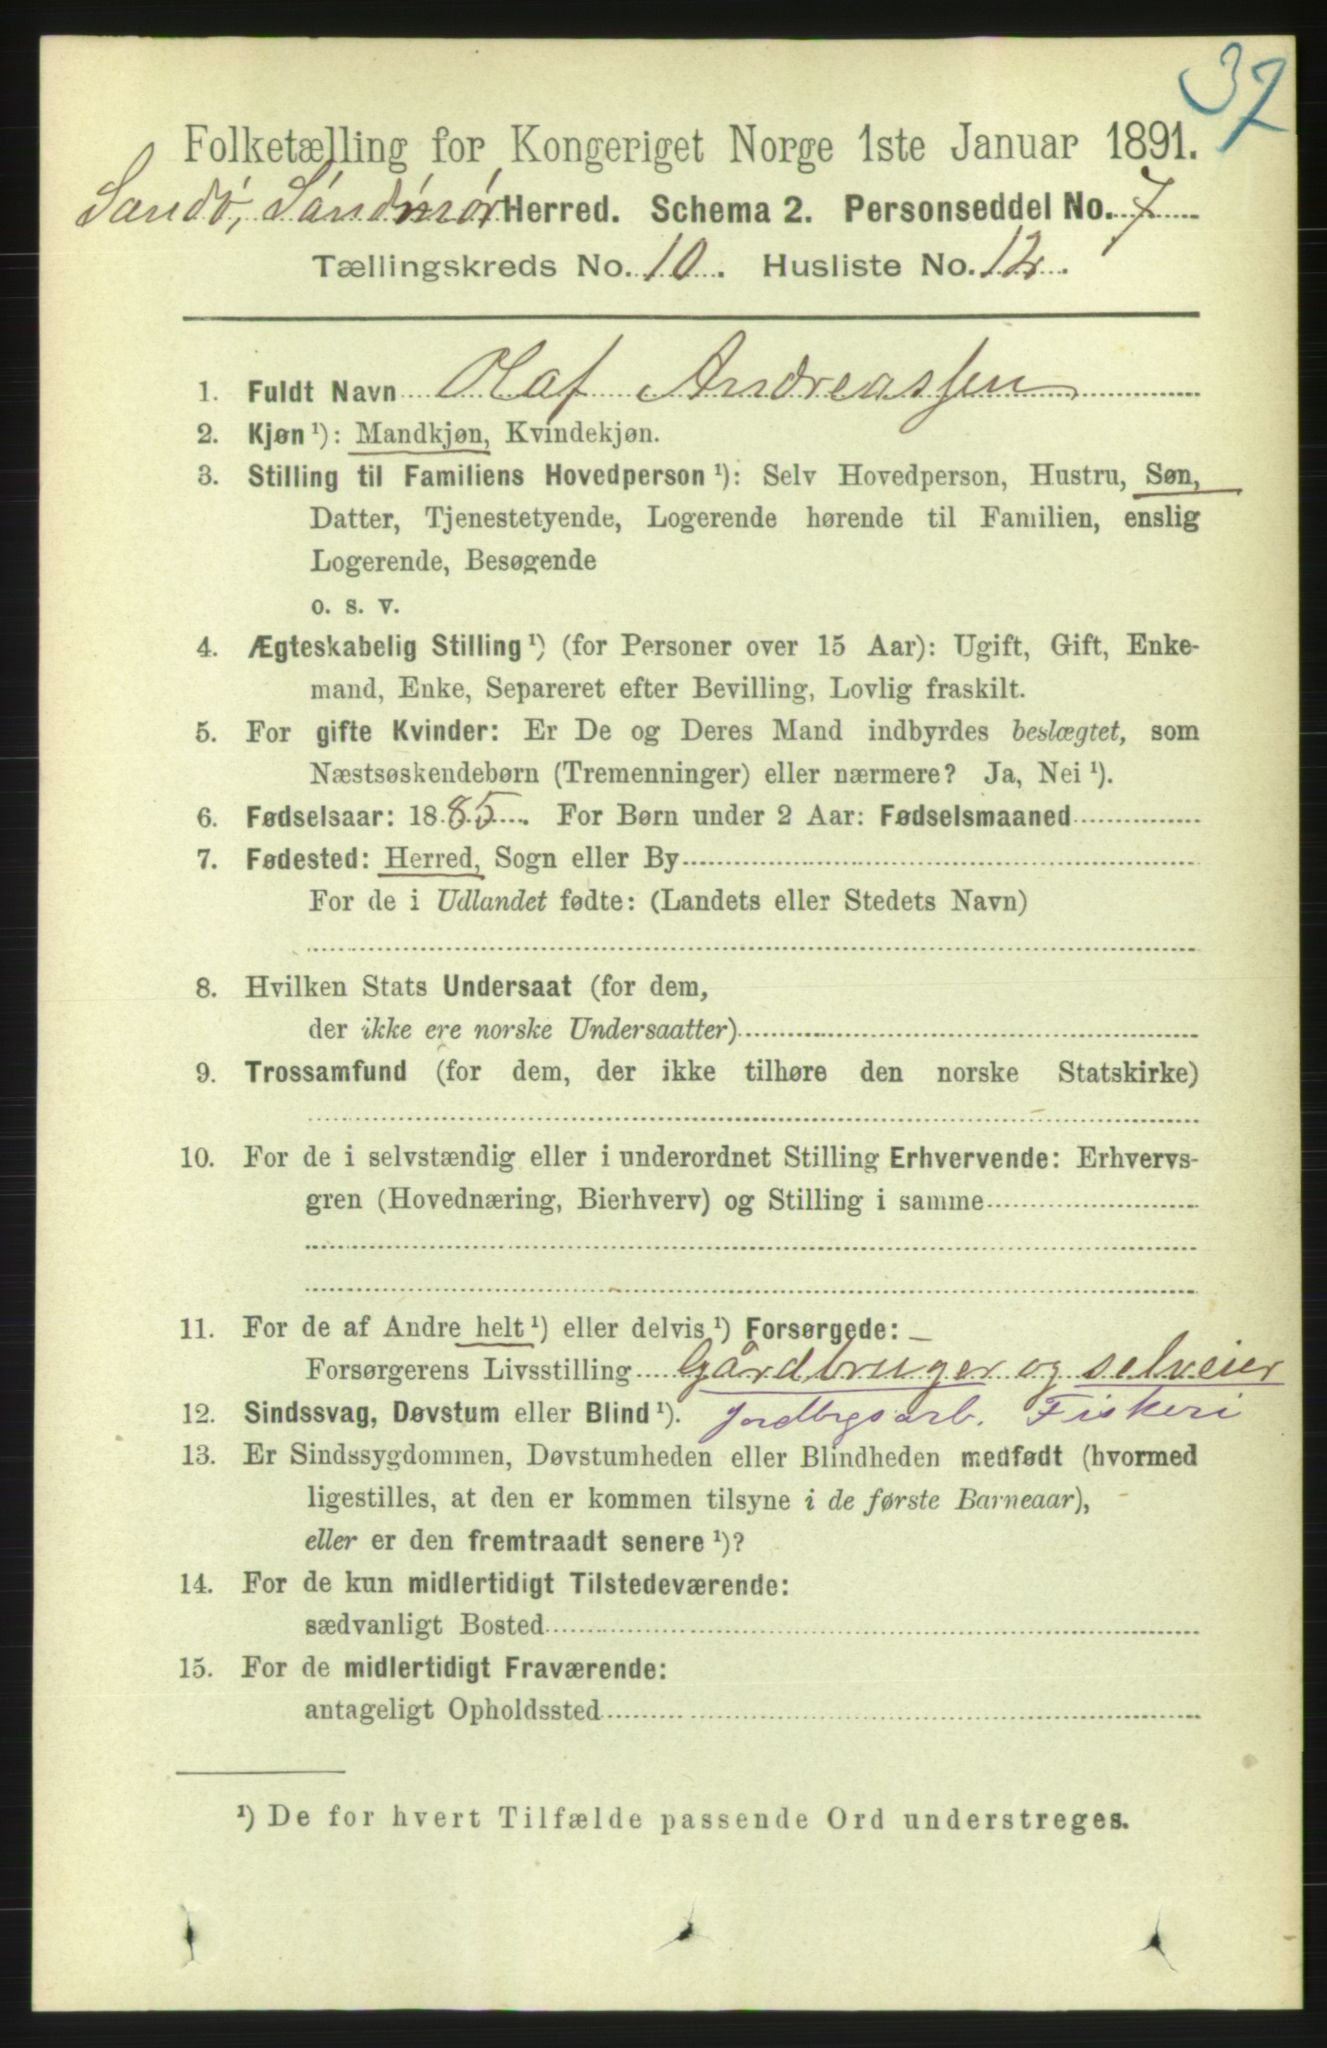 37
Folketælling for Kongeriget Norge 1ste Januar 1891.
Sandø, Søndmør Herred. Schema 2. Personseddel No. 7
Tællingskreds No. 10. Husliste No. 12.
1. Fuldt Navn Olaf Andreassen
2. Kjøn ¹): Mandkjøn, Kvindekjøn.
3. Stilling til Familiens Hovedperson ¹): Selv Hovedperson, Hustru, Søn,
Datter, Tjenestetyende, Logerende hørende til Familien, enslig
Logerende, Besøgende
o. s. v.
4. Ægteskabelig Stilling ¹) (for Personer over 15 Aar): Ugift, Gift, Enke-
mand, Enke, Separeret efter Bevilling, Lovlig fraskilt.
5. For gifte Kvinder: Er De og Deres Mand indbyrdes beslægtet, som
Næstsøskendebørn (Tremenninger) eller nærmere? Ja, Nei ¹).
6. Fødselsaar: 1885. For Børn under 2 Aar: Fødselsmaaned
7. Fødested: Herred, Sogn eller By
For de i Udlandet fødte: (Landets eller Stedets Navn)
8. Hvilken Stats Undersaat (for dem,
der ikke ere norske Undersaatter)
9. Trossamfund (for dem, der ikke tilhøre den norske Statskirke)
10. For de i selvstændig eller i underordnet Stilling Erhvervende: Erhvervs-
gren (Hovednæring, Bierhverv) og Stilling i samme
11. For de af Andre helt ¹) eller delvis ¹) Forsørgede:
Forsørgerens Livsstilling Gårdbruger og selveier
12. Sindssvag, Døvstum eller Blind ¹). Jordbrgsarb. Fiskeri
13. Er Sindssygdommen, Døvstumheden eller Blindheden medfødt (hvormed
ligestilles, at den er kommen tilsyne i de første Barneaar),
eller er den fremtraadt senere ¹)?
14. For de kun midlertidigt Tilstedeværende:
sædvanligt Bosted
15. For de midlertidigt Fraværende:
antageligt Opholdssted
¹) De for hvert Tilfælde passende Ord understreges.